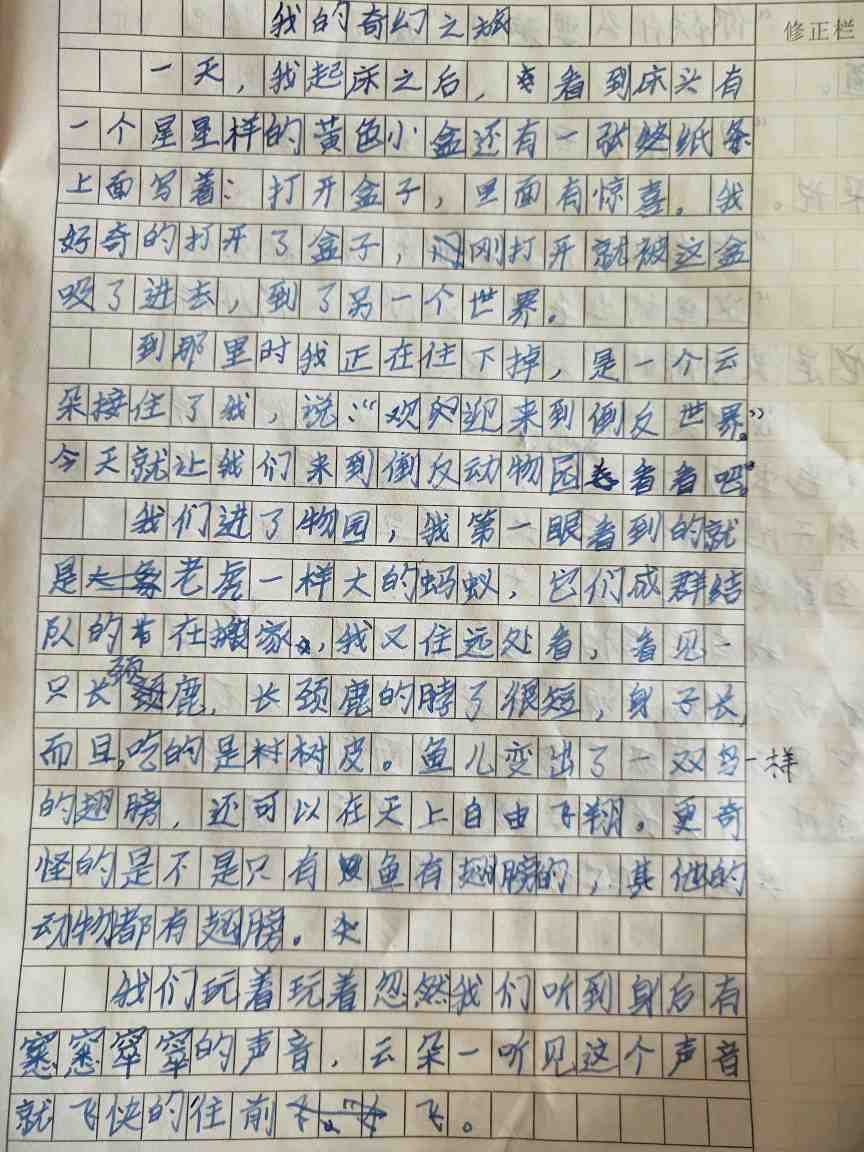 我的奇幻之旅
修正栏
一天,我起床之后,看到床头有
一个星星样的黄色小盒还有一张纸条
上面写着:打开盒子,里面有惊喜。我
好奇的打开了盒子,刚打开就被这盒
吸了进去,到了另一个世界。
到那里时我正在住下掉,是一个云
朵接住了我,说:“欢迎来到倒反世界。”
今天就让我们来到倒反动物园看看吧。”
我们进了物园,我第一眼看到的就
是老虎一样大的蚂蚁,它们成群结
队的在搬家,我又住远处看,看见一
只长颈鹿,长颈鹿的脖了很短,身子长,
而且,吃的是树皮。鱼儿变出了一双鸟一样
的翅膀,还可以在天上自由飞翔。更奇
怪的是不是只有鱼有翅膀的,其他的
动物都有翅膀。
我们玩着玩着忽然我们听到身后有
窸窸窣窣的声音,云朵一听见这个声音
就飞快的往前飞。